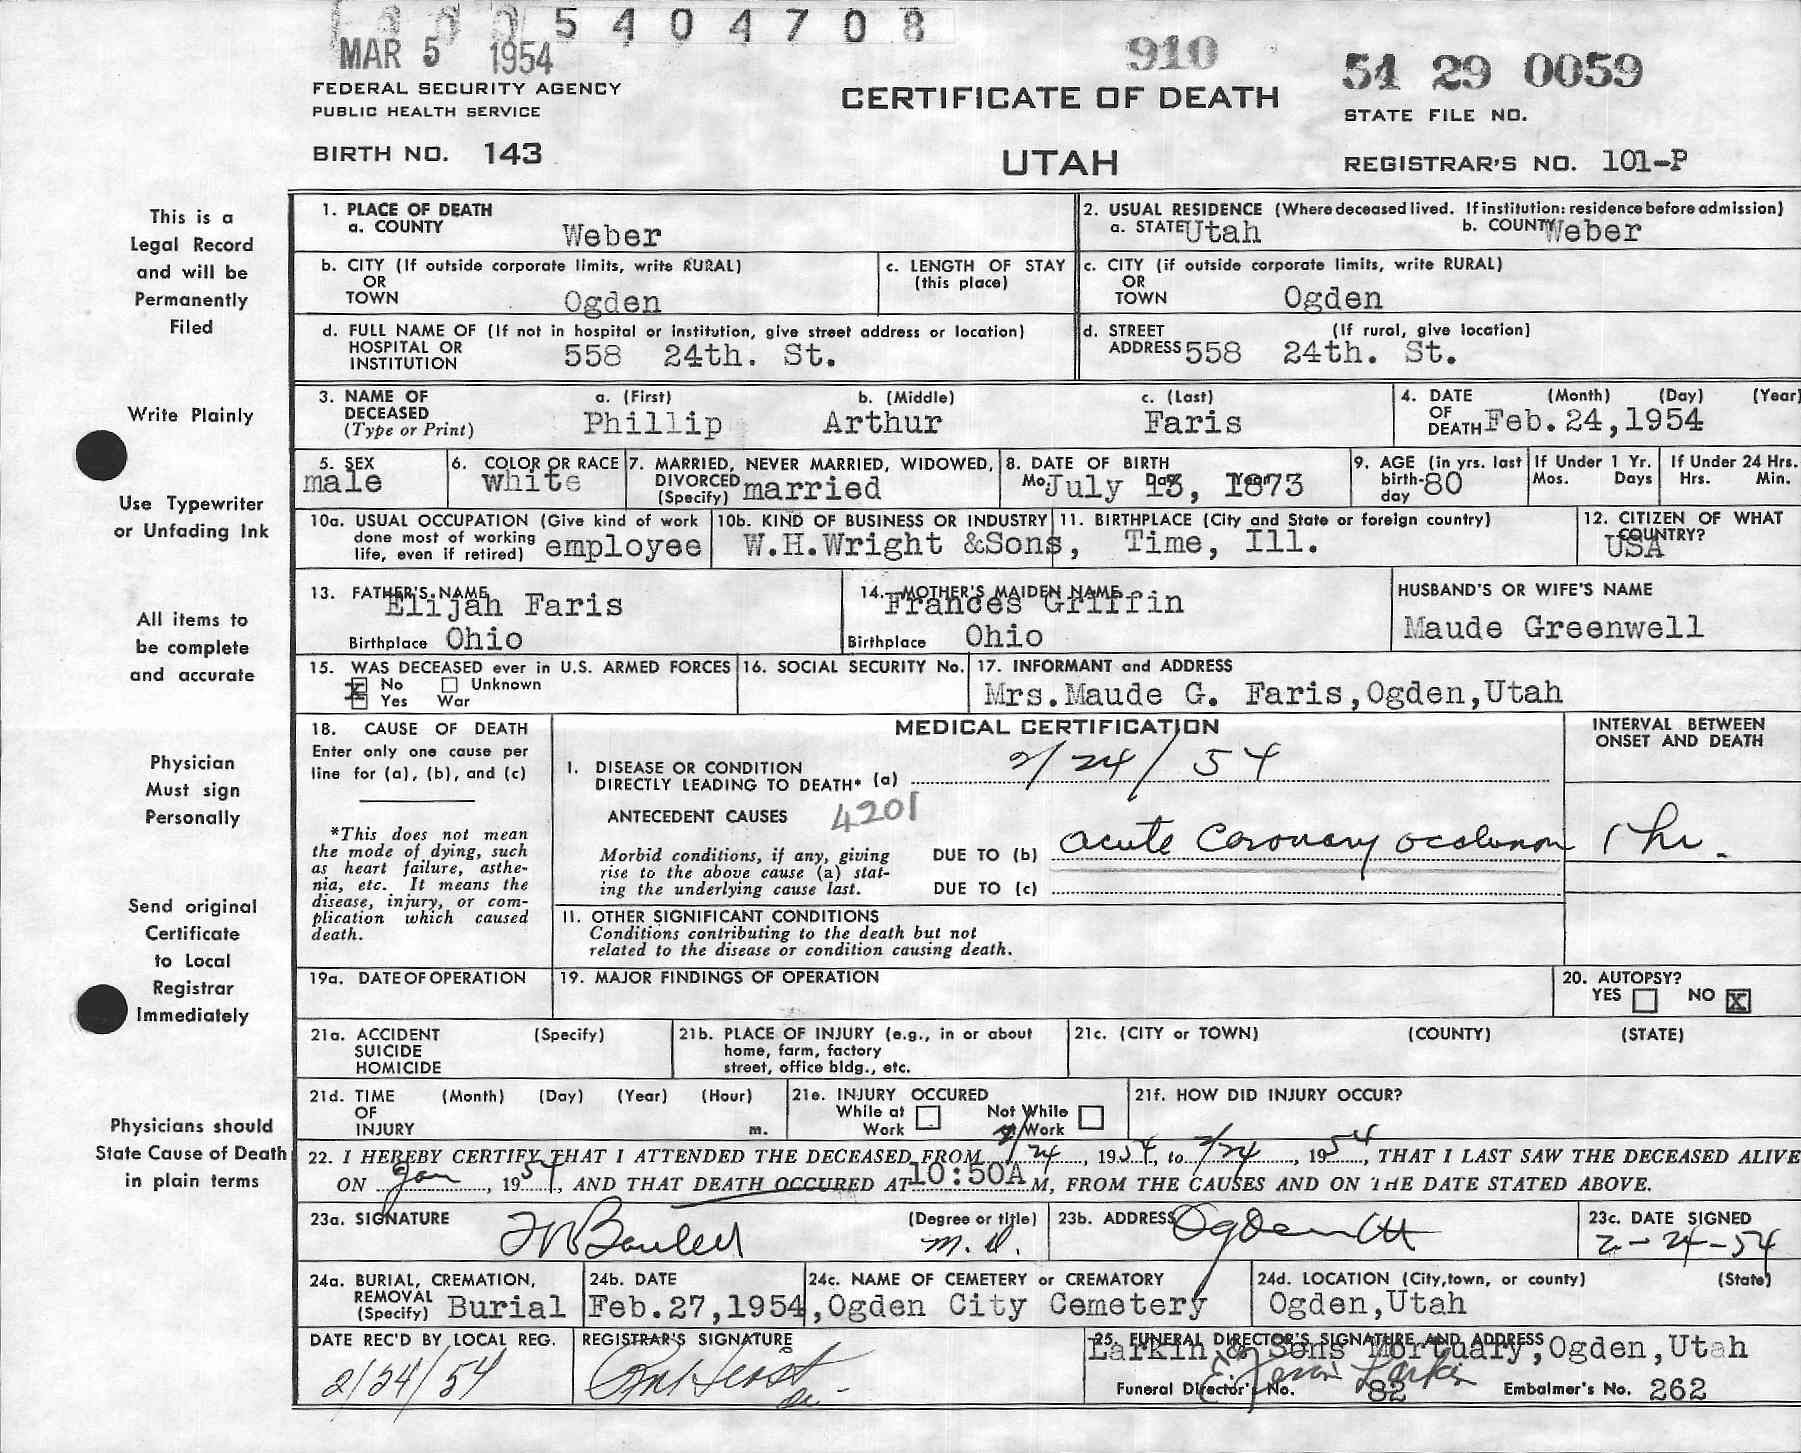 5 4 0 4 7 0 8
MAR 5 1954
910
54 29 0059
FEDERAL SECURITY AGENCY
PUBLIC HEALTH SERVICE
CERTIFICATE OF DEATH
STATE FILE NO.
BIRTH NO. 143
UTAH
REGISTRAR'S NO. 101-P
This is a
Legal Record
and will be
Permanently
Filed
Write Plainly
Use Typewriter
or Unfading Ink
All items to
be complete
and accurate
Physician
Must sign
Personally
Send original
Certificate
to Local
Registrar
Immediately
Physicians should
State Cause of Death
in plain terms
1. PLACE OF DEATH
a. COUNTY Weber
2. USUAL RESIDENCE (Where deceased lived. If institution: residence before admission)
a. STATE Utah b. COUNTY Weber
b. CITY (If outside corporate limits, write RURAL)
OR
TOWN Ogden
c. LENGTH OF STAY
(this place)
c. CITY (if outside corporate limits, write RURAL)
OR
TOWN Ogden
d. FULL NAME OF (If not in hospital or institution, give street address or location)
HOSPITAL OR
INSTITUTION 558 24th. St.
d. STREET (If rural, give location)
ADDRESS 558 24th. St.
3. NAME OF a. (First) b. (Middle) c. (Last)
DECEASED Phillip Arthur Faris
(Type or Print)
4. DATE (Month) (Day) (Year)
OF
DEATH Feb. 24, 1954
5. SEX
male
6. COLOR OR RACE
white
7. MARRIED, NEVER MARRIED, WIDOWED,
DIVORCED
(Specify) married
8. DATE OF BIRTH
Mo. Day Year
July 13, 1873
9. AGE (in yrs. last
birth-
day 80
If Under 1 Yr.
Mos. Days
If Under 24 Hrs.
Hrs. Min.
10a. USUAL OCCUPATION (Give kind of work
done most of working
life, even if retired) employee
10b. KIND OF BUSINESS OR INDUSTRY
W.H.Wright &Sons,
11. BIRTHPLACE (City and State or foreign country)
Time, Ill.
12. CITIZEN OF WHAT
COUNTRY?
USA
13. FATHER'S NAME
Elijah Faris
Birthplace Ohio
14. MOTHER'S MAIDEN NAME
Frances Griffin
Birthplace Ohio
HUSBAND'S OR WIFE'S NAME
Maude Greenwell
15. WAS DECEASED ever in U.S. ARMED FORCES
X No Unknown
Yes War
16. SOCIAL SECURITY No.
17. INFORMANT and ADDRESS
Mrs.Maude G. Faris,Ogden,Utah
18. CAUSE OF DEATH
Enter only one cause per
line for (a), (b), and (c)
*This does not mean
the mode of dying, such
as heart failure, asthe-
nia, etc. It means the
disease, injury, or com-
plication which caused
death.
MEDICAL CERTIFICATION
INTERVAL BETWEEN
ONSET AND DEATH
I. DISEASE OR CONDITION
DIRECTLY LEADING TO DEATH* (a) 2/24/54
ANTECEDENT CAUSES 4201
Morbid conditions, if any, giving
rise to the above cause (a) stat-
ing the underlying cause last.
DUE TO (b) acute coronary occlusion 1 hr.
DUE TO (c)
II. OTHER SIGNIFICANT CONDITIONS
Conditions contributing to the death but not
related to the disease or condition causing death.
19a. DATE OF OPERATION
19. MAJOR FINDINGS OF OPERATION
20. AUTOPSY?
YES NO X
21a. ACCIDENT (Specify)
SUICIDE
HOMICIDE
21b. PLACE OF INJURY (e.g., in or about
home, farm, factory
street, office bldg., etc.
21c. (CITY or TOWN) (COUNTY) (STATE)
21d. TIME (Month) (Day) (Year) (Hour)
OF
INJURY m.
21e. INJURY OCCURED
While at Not While
Work at Work
21f. HOW DID INJURY OCCUR?
22. I HEREBY CERTIFY THAT I ATTENDED THE DECEASED FROM 2/24, 1954, to 2/24, 1954, THAT I LAST SAW THE DECEASED ALIVE
ON Jan, 1954, AND THAT DEATH OCCURED AT 10:50A M, FROM THE CAUSES AND ON THE DATE STATED ABOVE.
23a. SIGNATURE (Degree or title)
M.D.
23b. ADDRESS
Ogden Ut
23c. DATE SIGNED
2-24-54
24a. BURIAL, CREMATION,
REMOVAL
(Specify) Burial
24b. DATE
Feb.27,1954,
24c. NAME OF CEMETERY or CREMATORY
Ogden City Cemetery
24d. LOCATION (City, town, or county) (State)
Ogden,Utah
DATE REC'D BY LOCAL REG.
2/24/54
REGISTRAR'S SIGNATURE
25. FUNERAL DIRECTOR'S SIGNATURE AND ADDRESS
Larkin & Sons Mortuary,Ogden,Utah
Larkin
Funeral Director's No. 82 Embalmer's No. 262